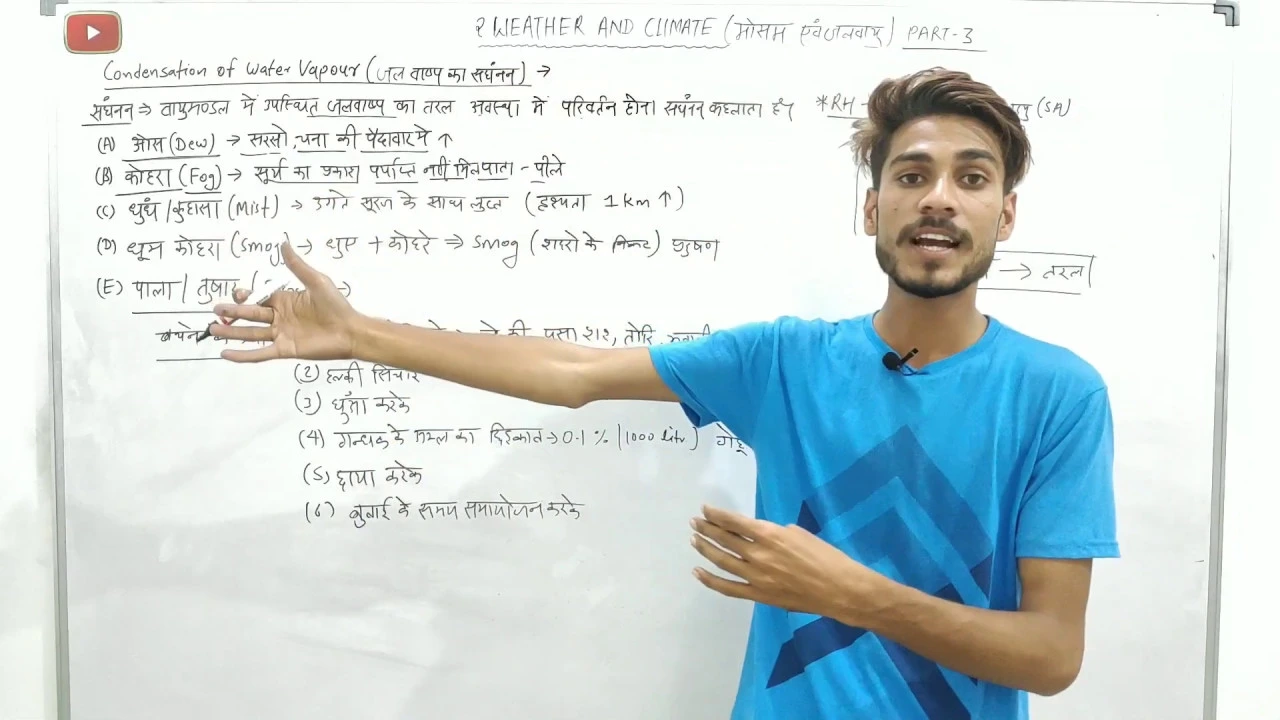 2 WEATHER AND CLIMATE (मौसम एवं जलवायु) PART-3
Condensation of Water Vapour (जल वाष्प का संघनन) →
संघनन ⇒ वायुमण्डल में उपस्थित जलवाष्प का तरल अवस्था में परिवर्तन होना संघनन कहलाता है। *RH (SA)
(A) ओस (Dew) → सरसों, चना की पैदावार में ↑
(B) कोहरा (Fog) → सूर्य का प्रकाश पर्याप्त नहीं मिल पाता - पीले
(C) धुंध / कुहासा (Mist) → उगते सूरज के साथ लुप्त (दृश्यता 1 km ↑)
(D) धूम कोहरा (Smog) → धुए + कोहरे ⇒ Smog (शहरो के निकट) प्रदुषण
(E) पाला / तुषार / → तरल
(2) हल्की सिंचाई
(3) धुँआ करके
(4) गन्धक के अम्ल का छिड़काव → 0.1 % (1000 litr) गेहूँ
(5) छाया करके
(6) बुवाई के समय समायोजन करके